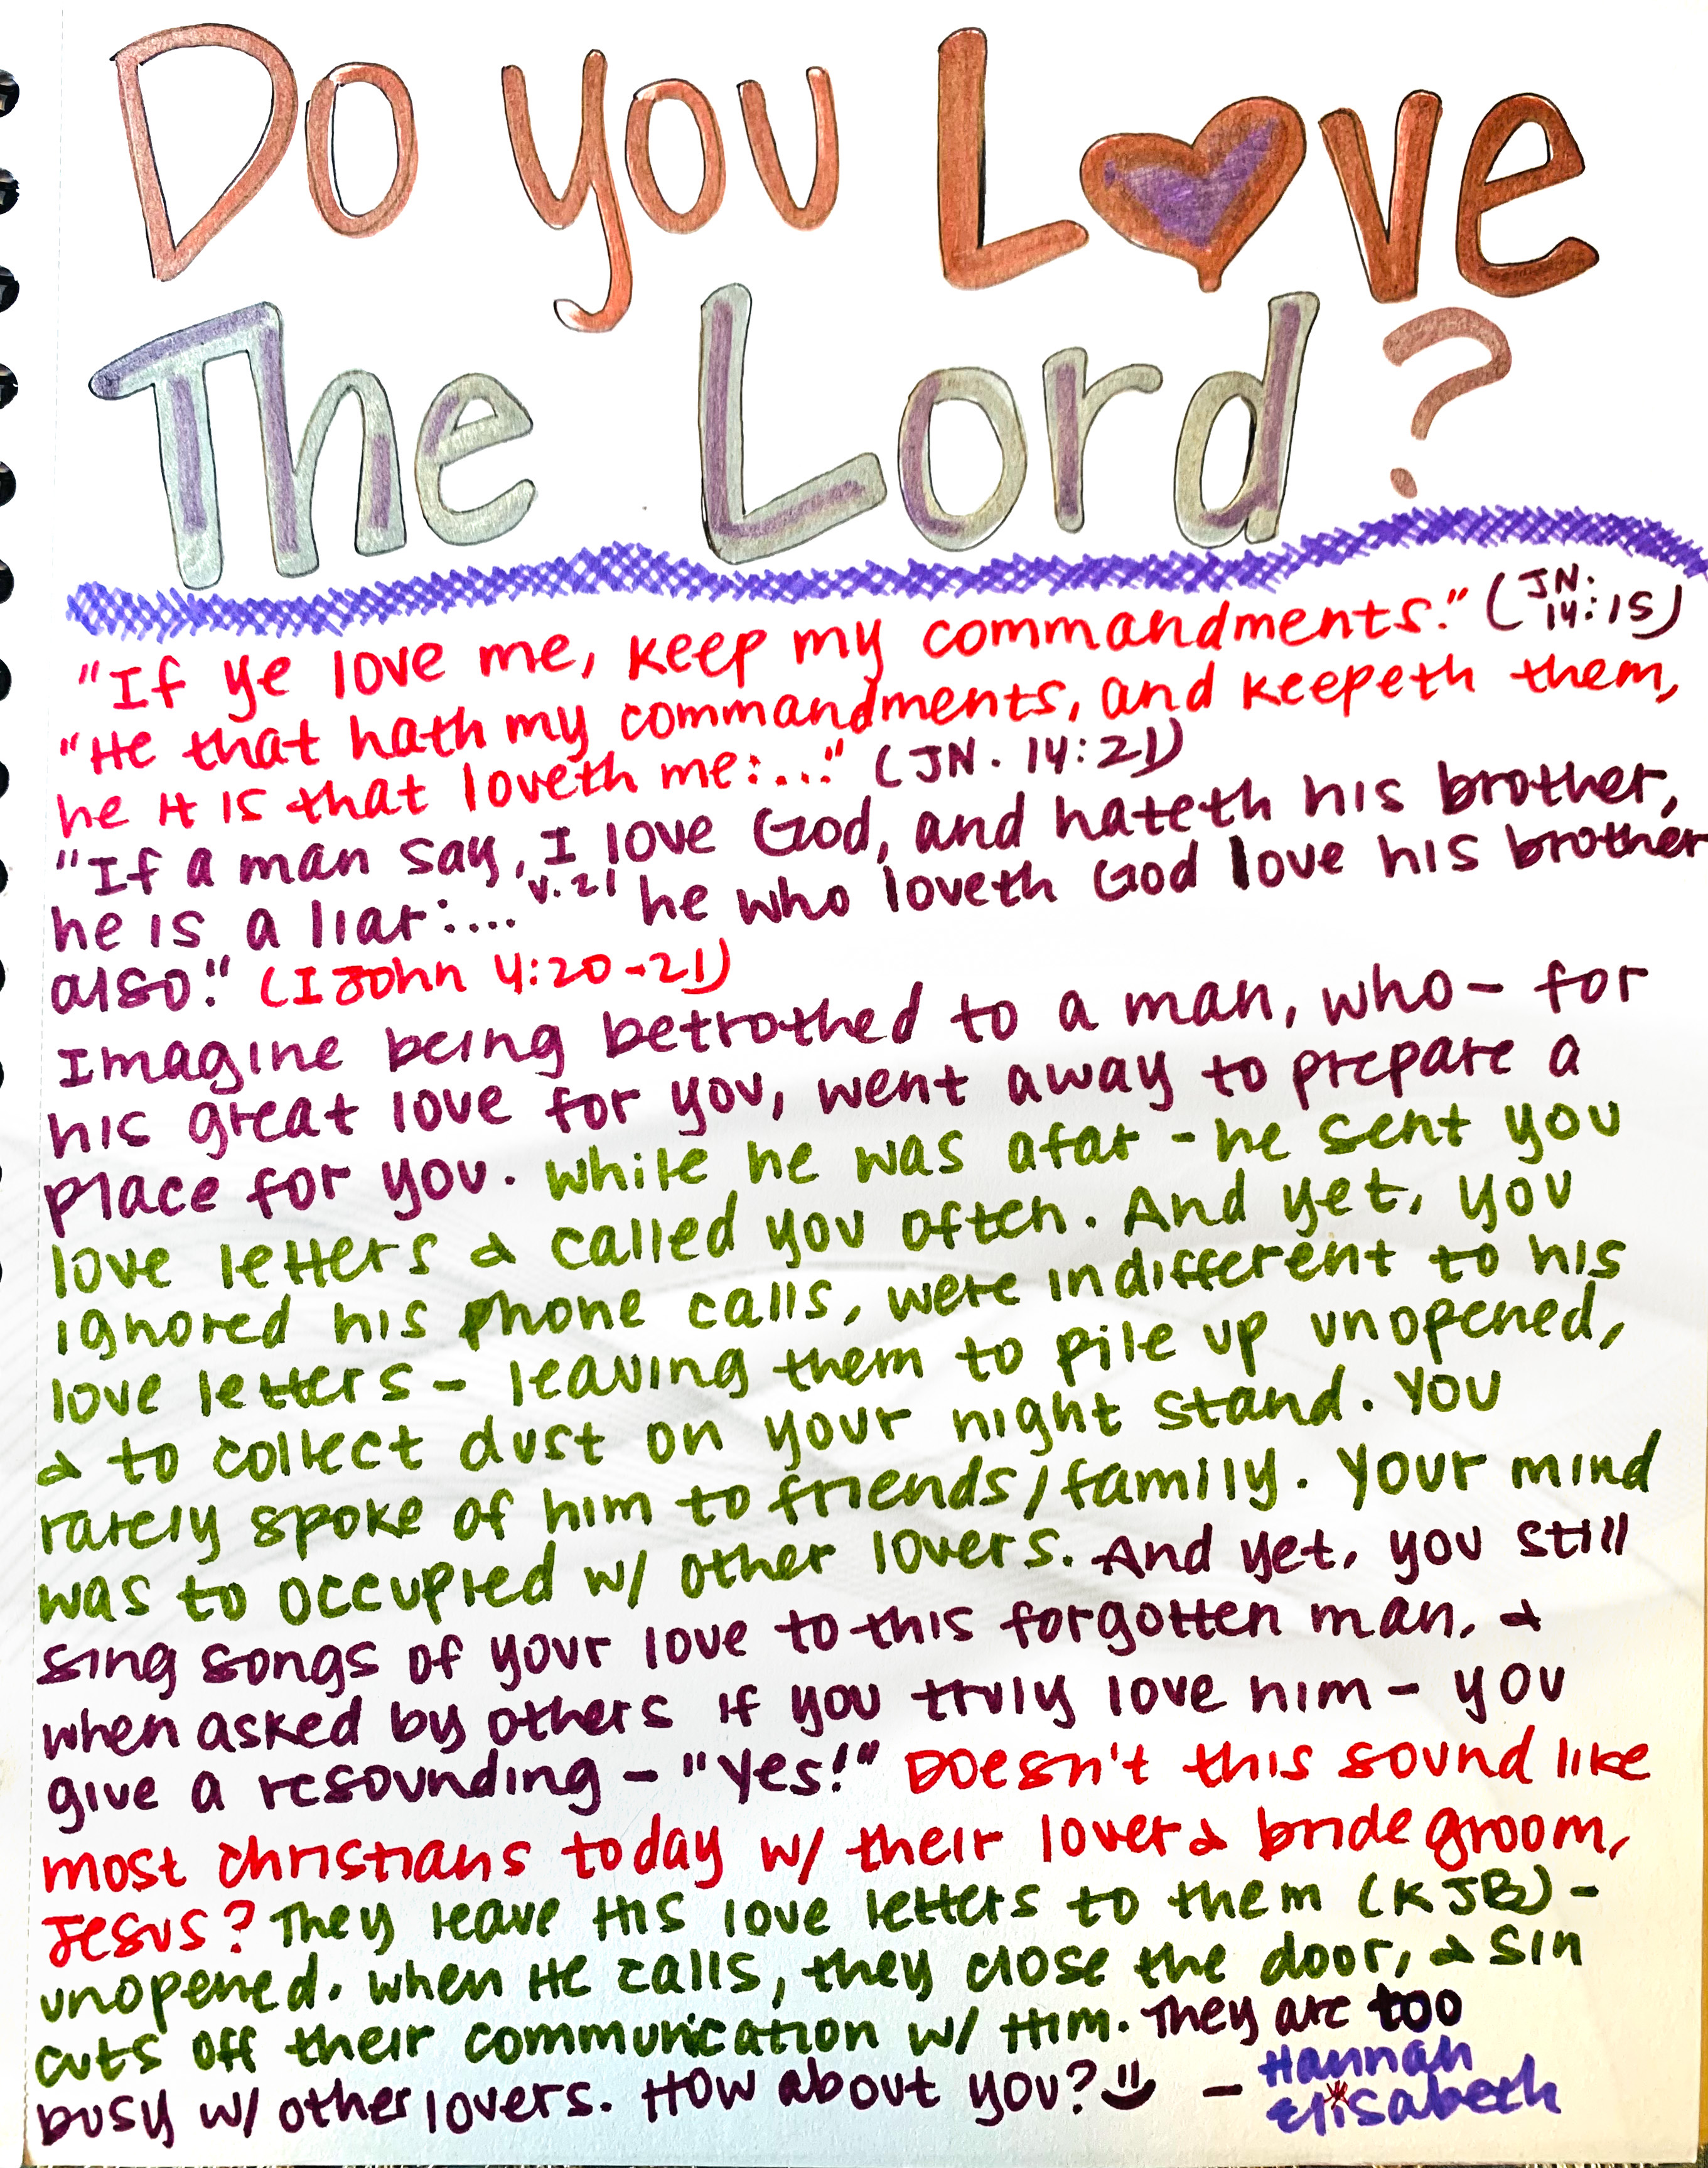 Do you Love
The Lord?
"If ye love me, keep my commandments." (JN. 14:15)
"He that hath my commandments, and keepeth them,
he it is that loveth me:..." (JN. 14:21)
"If a man say, I love God, and hateth his brother,
he is a liar:.... v.21 he who loveth God love his brother
also." (I John 4:20-21)
Imagine being betrothed to a man, who - for
his great love for you, went away to prepare a
place for you. While he was afar - he sent you
love letters & called you often. And yet, you
ignored his phone calls, were indifferent to his
love letters - leaving them to pile up unopened,
& to collect dust on your night stand. You
rarely spoke of him to friends/family. Your mind
was to occupied w/ other lovers. And yet, you still
sing songs of your love to this forgotten man, &
when asked by others if you truly love him - you
give a resounding - "Yes!" Doesn't this sound like
most christians today w/ their lover & bridegroom,
Jesus? They leave His love letters to them (KJB) -
unopened. When He calls, they close the door, & sin
cuts off their communication w/ Him. They are too
busy w/ other lovers. How about you? - Hannah
Elisabeth